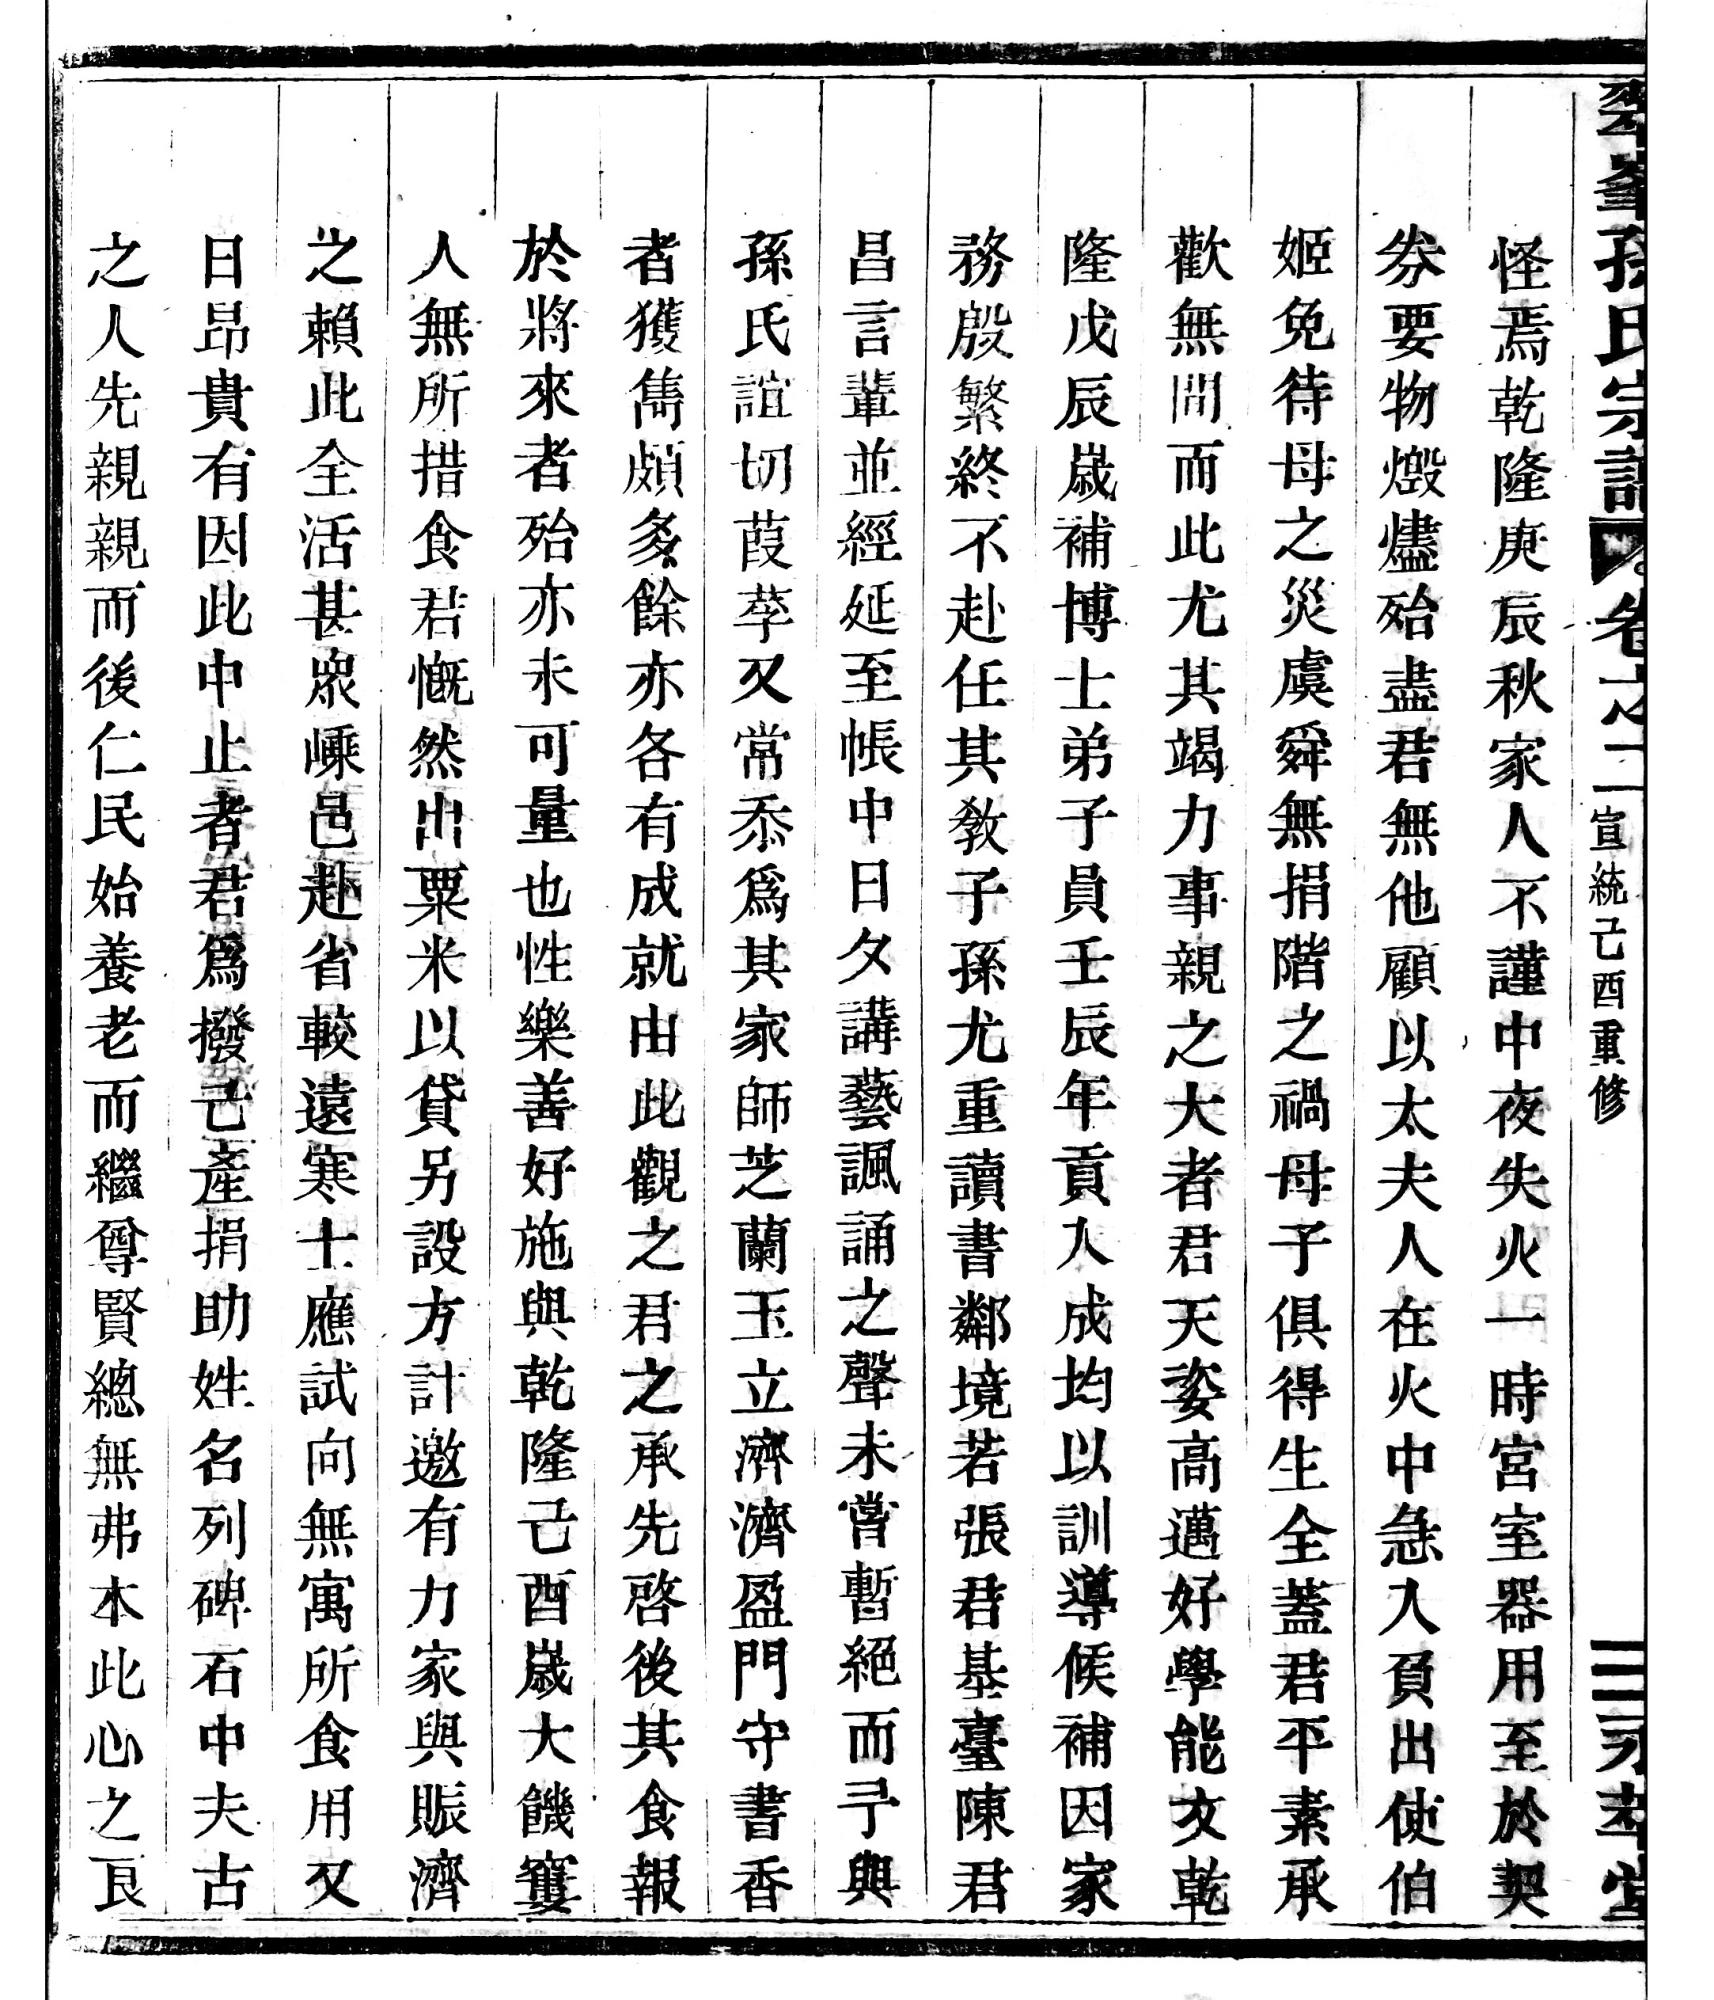 峯孫氏宗譜 卷之二 宣統己酉重修 三 萃堂
怪焉乾隆庚辰秋家人不謹中夜失火一時宮室器用至於契
劵要物燬燼殆盡君無他顧以太夫人在火中急入負出使伯
姬免待母之災虞舜無捐階之禍母子俱得生全蓋君平素承
歡無間而此尤其竭力事親之大者君天姿高邁好學能文乾
隆戊辰歲補博士弟子員壬辰年貢入成均以訓導候補因家
務殷繁終不赴任其敎子孫尤重讀書鄰境若張君基臺陳君
昌言輩並經延至帳中日夕講藝諷誦之聲未嘗暫絕而予與
孫氏誼切葭莩又常忝爲其家師芝蘭玉立濟濟盈門守書香
者獲雋頗多餘亦各有成就由此觀之君之承先啓後其食報
於將來者殆亦未可量也性樂善好施與乾隆己酉歲大饑窶
人無所措食君慨然出粟米以貸另設方計邀有力家與賑濟
之賴此全活甚衆嵊邑赴省較遠寒士應試向無寓所食用又
日昂貴有因此中止者君爲撥己產捐助姓名列碑石中夫古
之人先親親而後仁民始養老而繼尊賢總無弗本此心之良